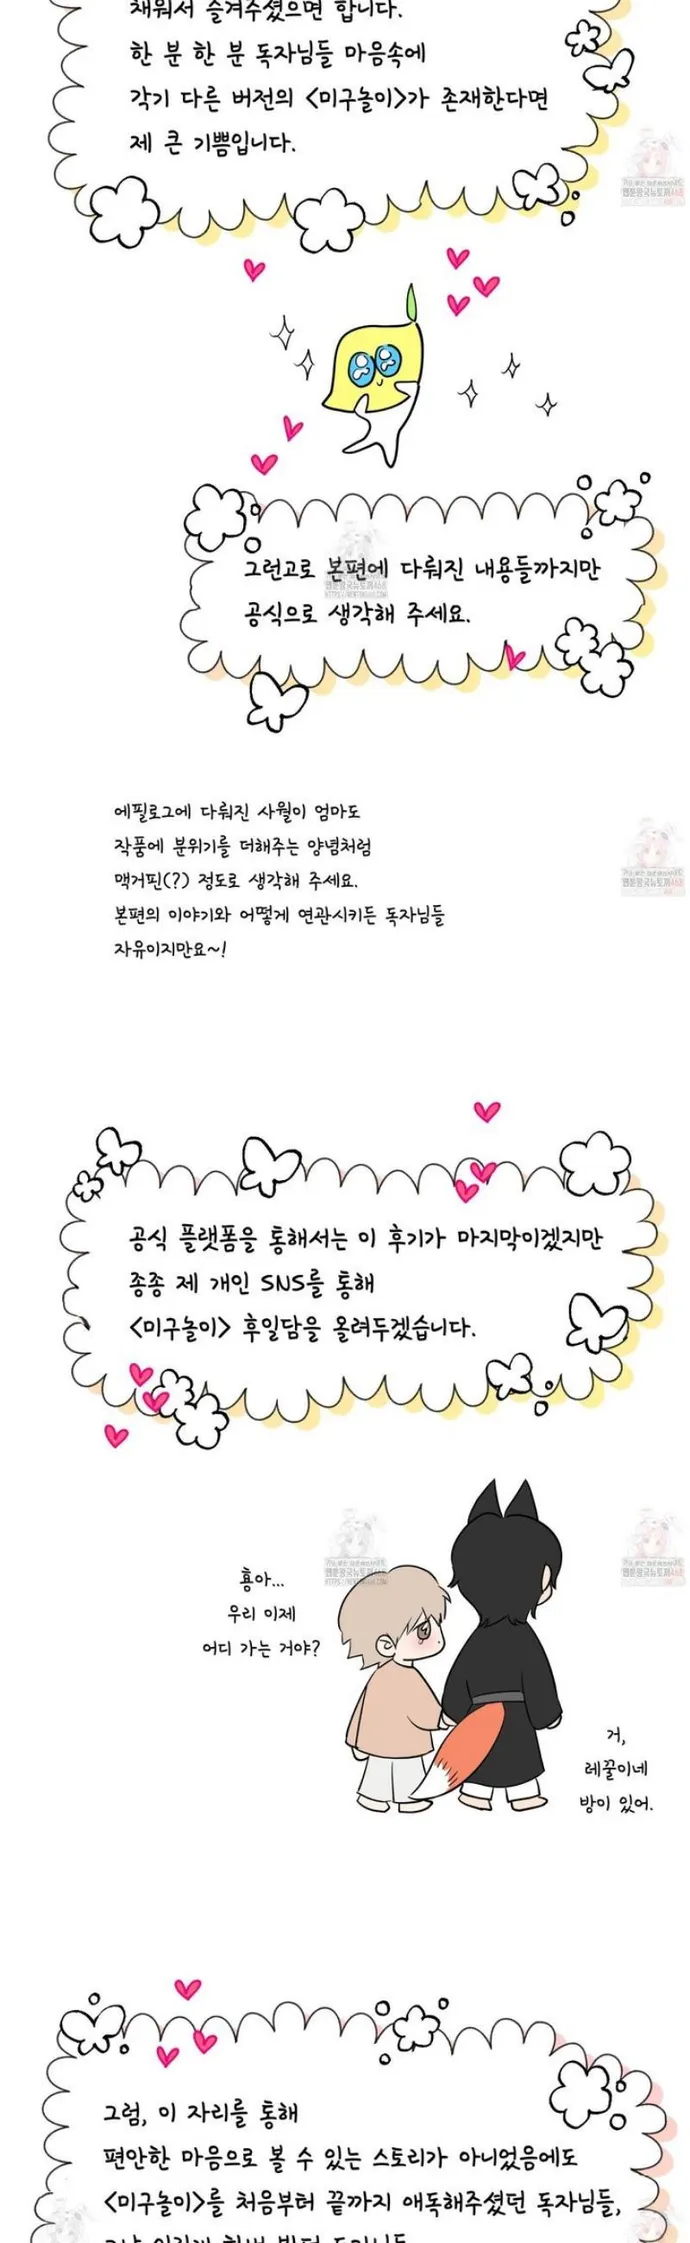 채워서 즐겨주셨으면 합니다.
한 분 한 분 독자님들 마음속에
각기 다른 버전의 <미구놀이>가 존재한다면
제 큰 기쁨입니다.
그런고로 본편에 다뤄진 내용들까지만
공식으로 생각해 주세요.
에필로그에 다뤄진 사월이 엄마도
작품에 분위기를 더해주는 양념처럼
맥거핀(?) 정도로 생각해 주세요.
본편의 이야기와 어떻게 연관시키든 독자님들
자유이지만요~!
공식 플랫폼을 통해서는 이 후기가 마지막이겠지만
종종 제 개인 SNS를 통해
<미구놀이> 후일담을 올려두겠습니다.
횽아...
우리 이제
어디 가는 거야?
거,
레꿀이네
방이 있어.
그럼, 이 자리를 통해
편안한 마음으로 볼 수 있는 스토리가 아니었음에도
<미구놀이>를 처음부터 끝까지 애독해주셨던 독자님들,